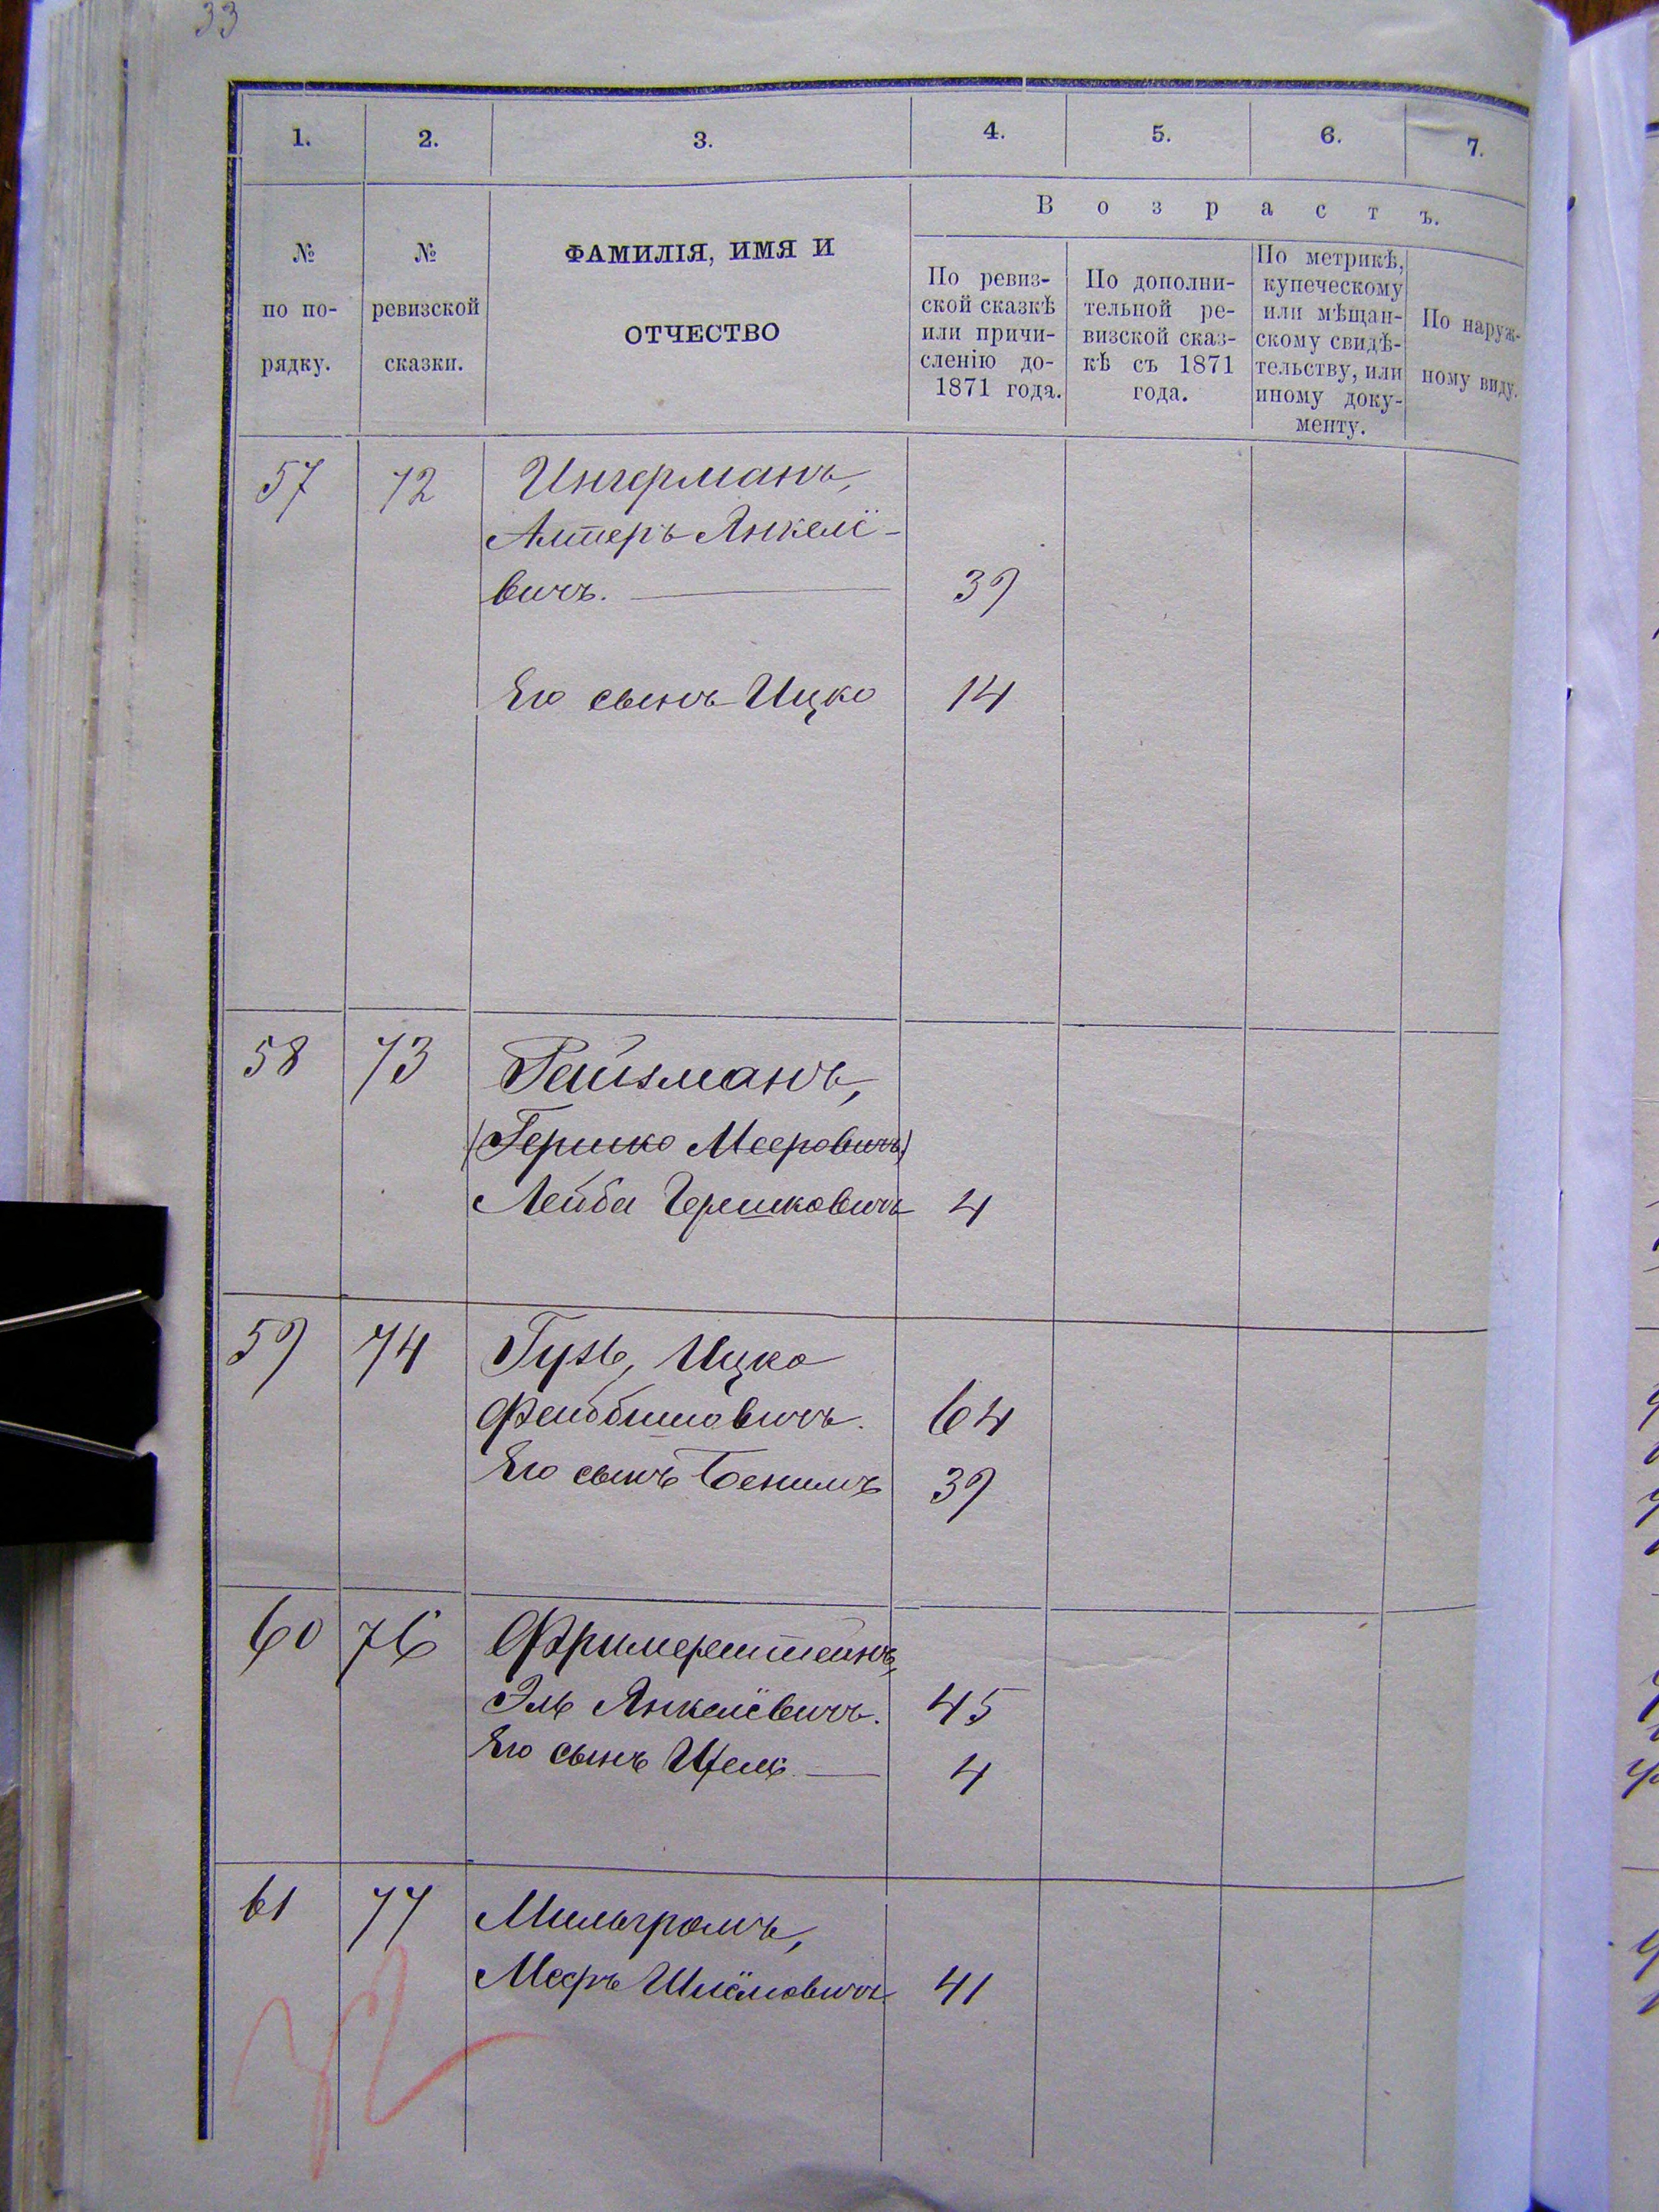 33
1. 2. 3. 4. 5. 6. 7.
№ по по-рядку.
№ ревизской сказки.
ФАМИЛІЯ, ИМЯ И
ОТЧЕСТВО
Возрастъ.
По ревиз-
ской сказкѣ
или причи-
сленію до-
1871 года.
По дополни-
тельной ре-
визской сказ-
кѣ съ 1871
года.
По метрикѣ,
купеческому
или мѣщан-
скому свидѣ-
тельству, или
иному доку-
менту.
По наруж-
ному виду.
57 72 Ингерманъ,
Алтеръ Янкелё-
вичъ. 39
Его сынъ Ицко 14
58 73 Рейзманъ,
(Гершко Мееровичъ)
Лейба Гершковичъ 4
59 74 Гузь, Ицко
Фейбишовичъ. 64
Его сынъ Бенимъ 39
60 76 Фримерштейнъ,
Эль Янкелёвичъ. 45
Его сынъ 4
61 77 Мильгромъ,
Мееръ Шлёмовичъ 41
32